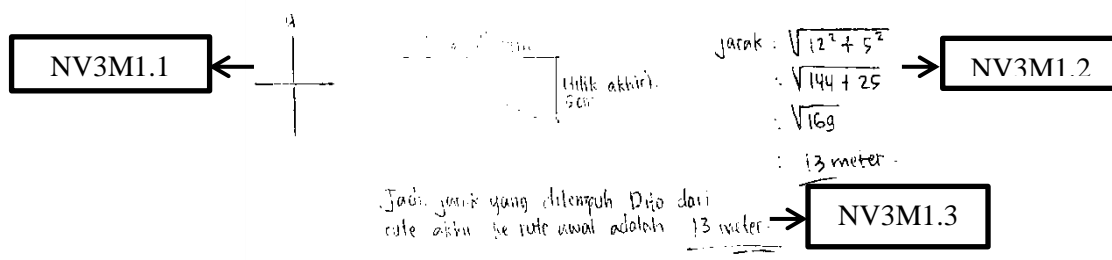 u
NV3M1.1
(titik akhir).
5 cm
jarak : √12² + 5²
: √144 + 25
: √169
: 13 meter.
NV3M1.2
Jadi jarak yang ditempuh Dito dari
rute akhir ke rute awal adalah 13 meter.
NV3M1.3